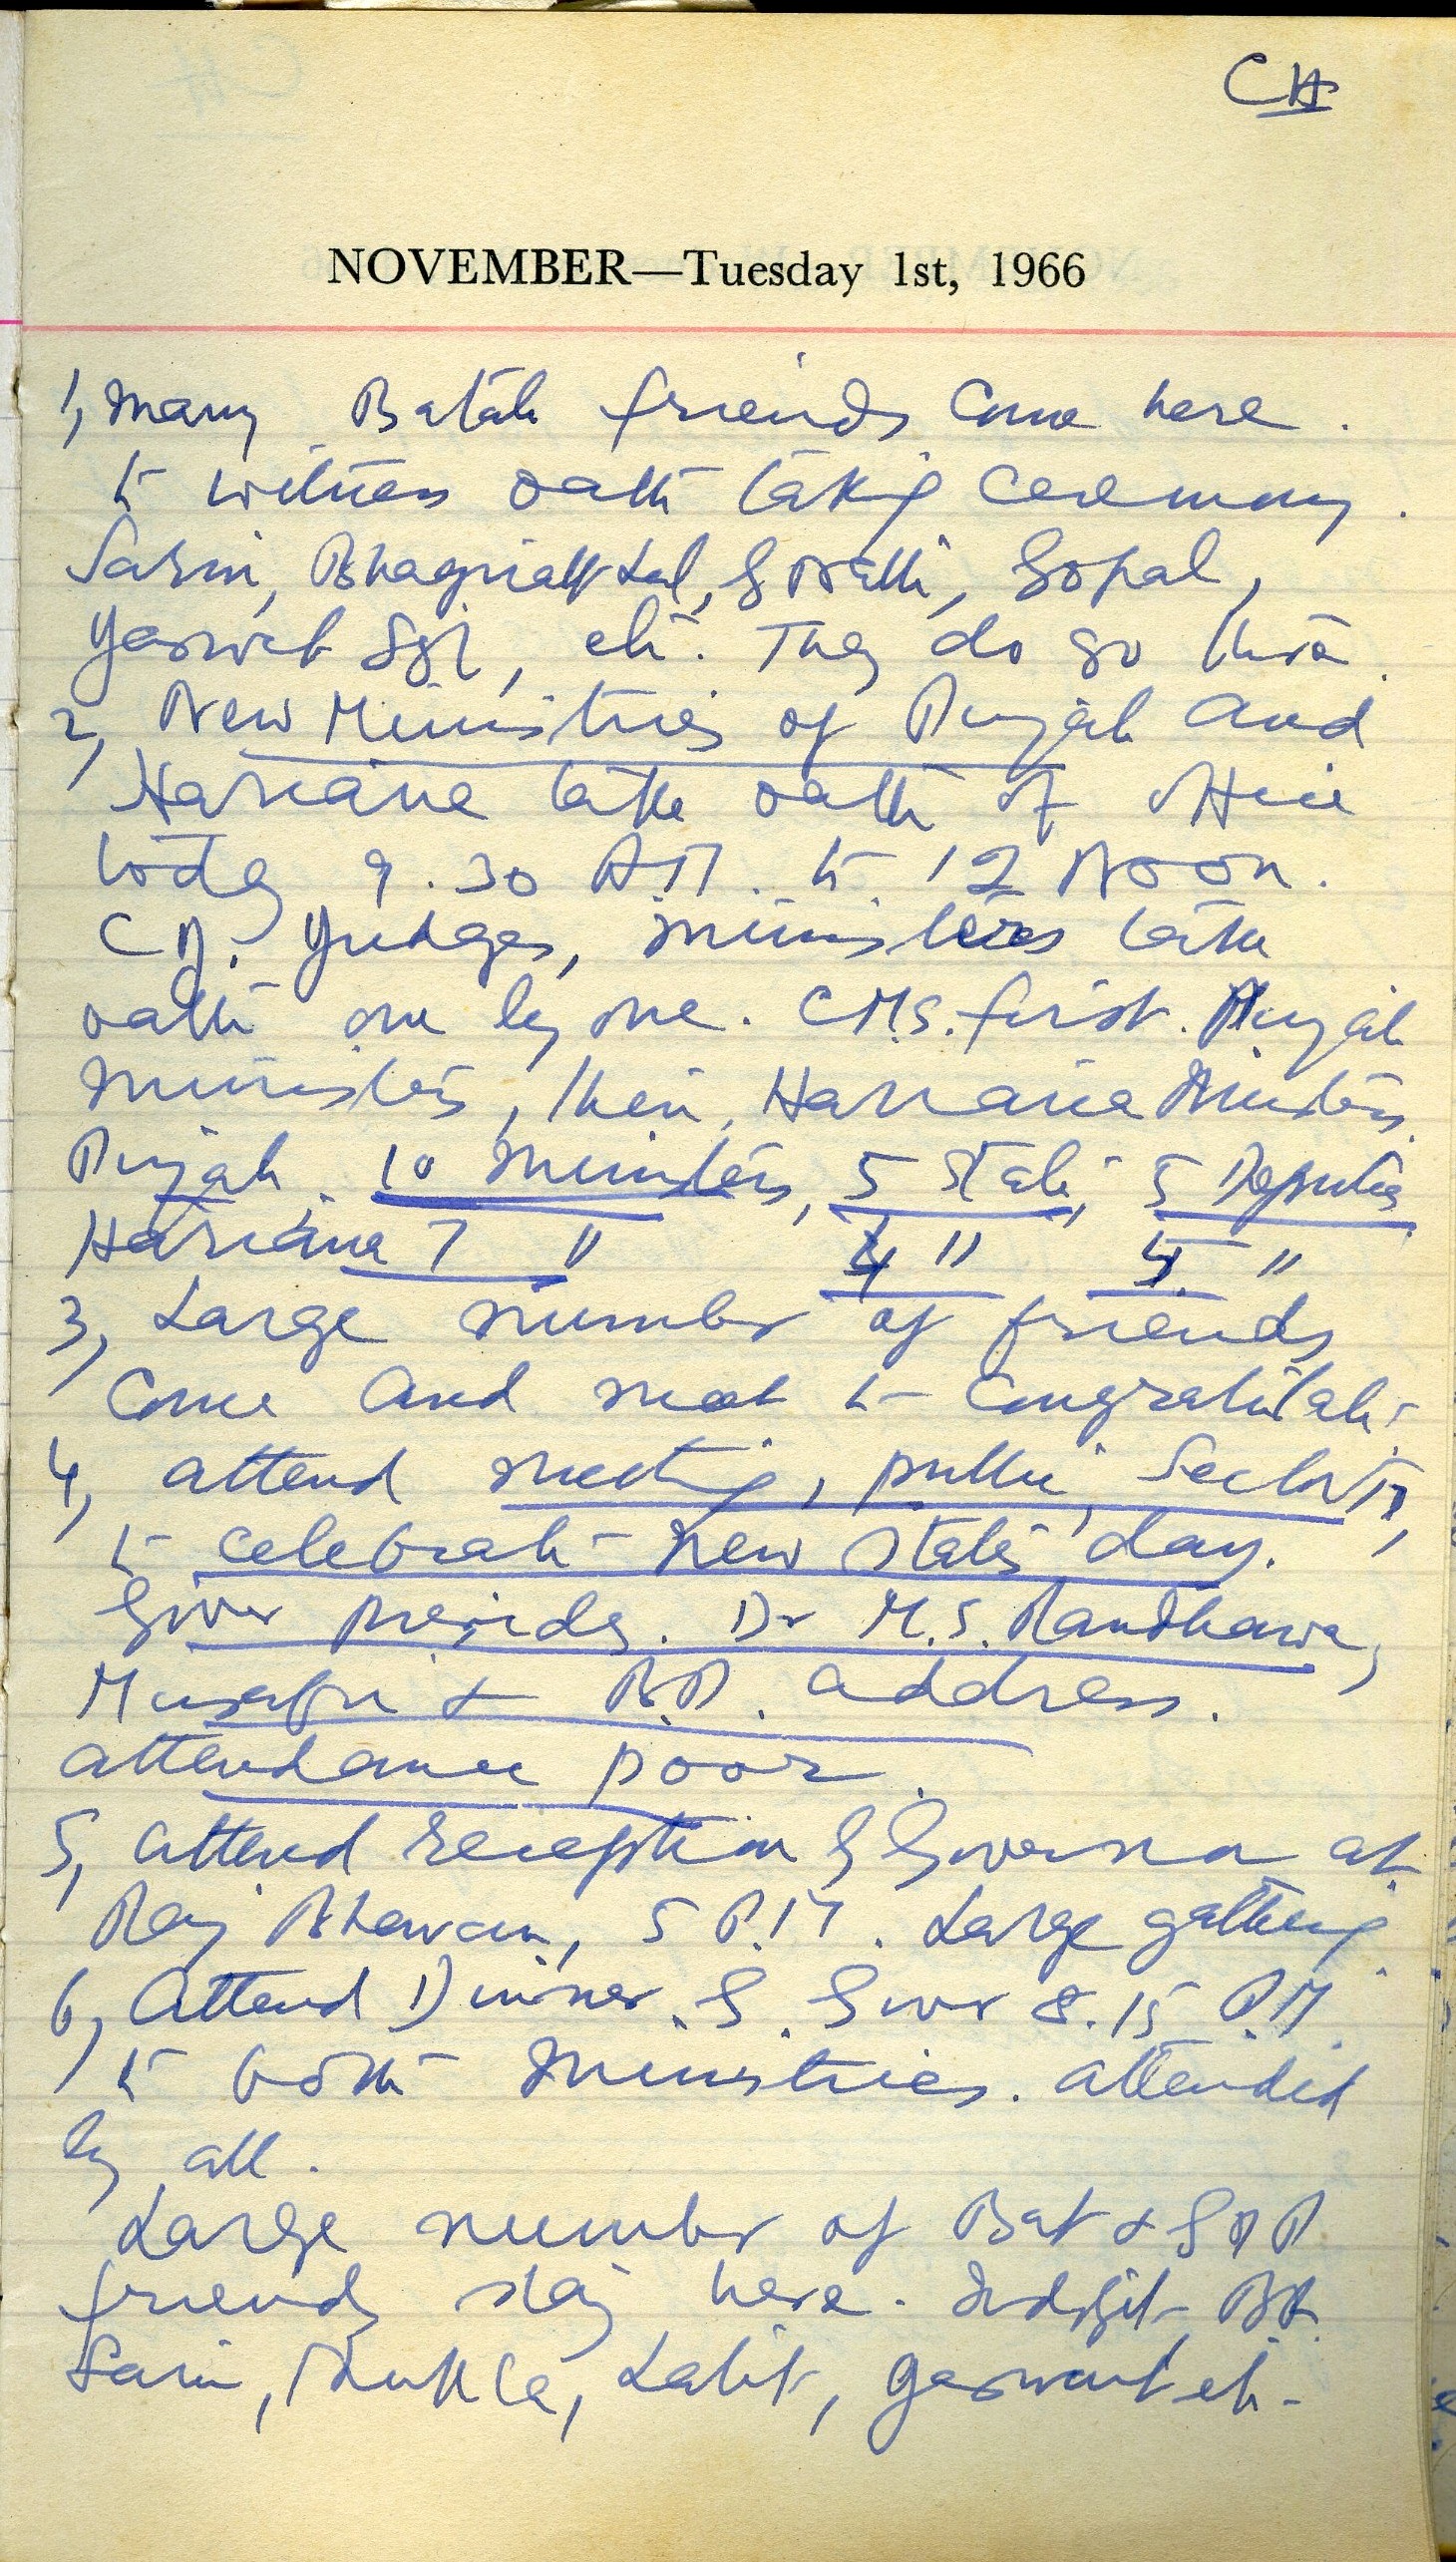 CH
NOVEMBER—Tuesday 1st, 1966
1, Many Batala friends come here.
to witness oath taking ceremony.
Sarin, Bhagirath Lal, Gopal,
Jaswant Sgh, etc. They do go
2, New Ministries of Punjab and
Hariana take oath of office
today 9.30 A.M. to 12 Noon.
Judges, ministers take
oath one by one. CMs. first. Punjab
Ministers, then, Hariana Ministers
Punjab. 10 Ministers, 5 State, 5 Deputies
Hariana 7 " 4 " "
3, Large number of friends
come and meet to congratulate
4, attend meeting, public, Sector 17,
to celebrate new states day.
Giver presides. Dr M.S. Randhawa,
Musafir & address.
attendance poor.
5, attend reception G Governor at
Raj Bhawan, 5 P.M. Large gathering
6, Attend Dinner. G. Gover 8.15 P.M.
to both Ministries. attended
by all.
Large number of Bat & GDP
friends stay here.
Sarin, Lalit, Jaswant etc-